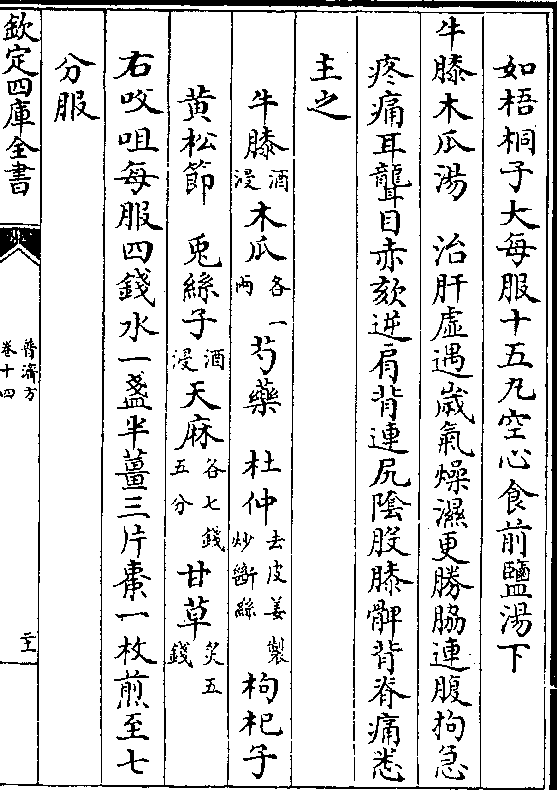 如梧桐子大每服十五丸空心食前鹽湯下
牛膝木瓜湯　治肝虛遇歲氣燥濕更勝脇連腹拘急
疼痛耳聾目赤欬逆肩背連尻陰股膝髀背脊痛悉
主之
牛膝酒浸　木瓜各一兩　芍藥　杜仲去皮姜製炒斷絲　枸杞子
黄松節　兎絲子酒浸　天麻各七錢五分　甘草炙五錢
右㕮咀每服四錢水一盞半薑三片棗一枚煎至七
分服
欽定四庫全書
普濟方
卷十四